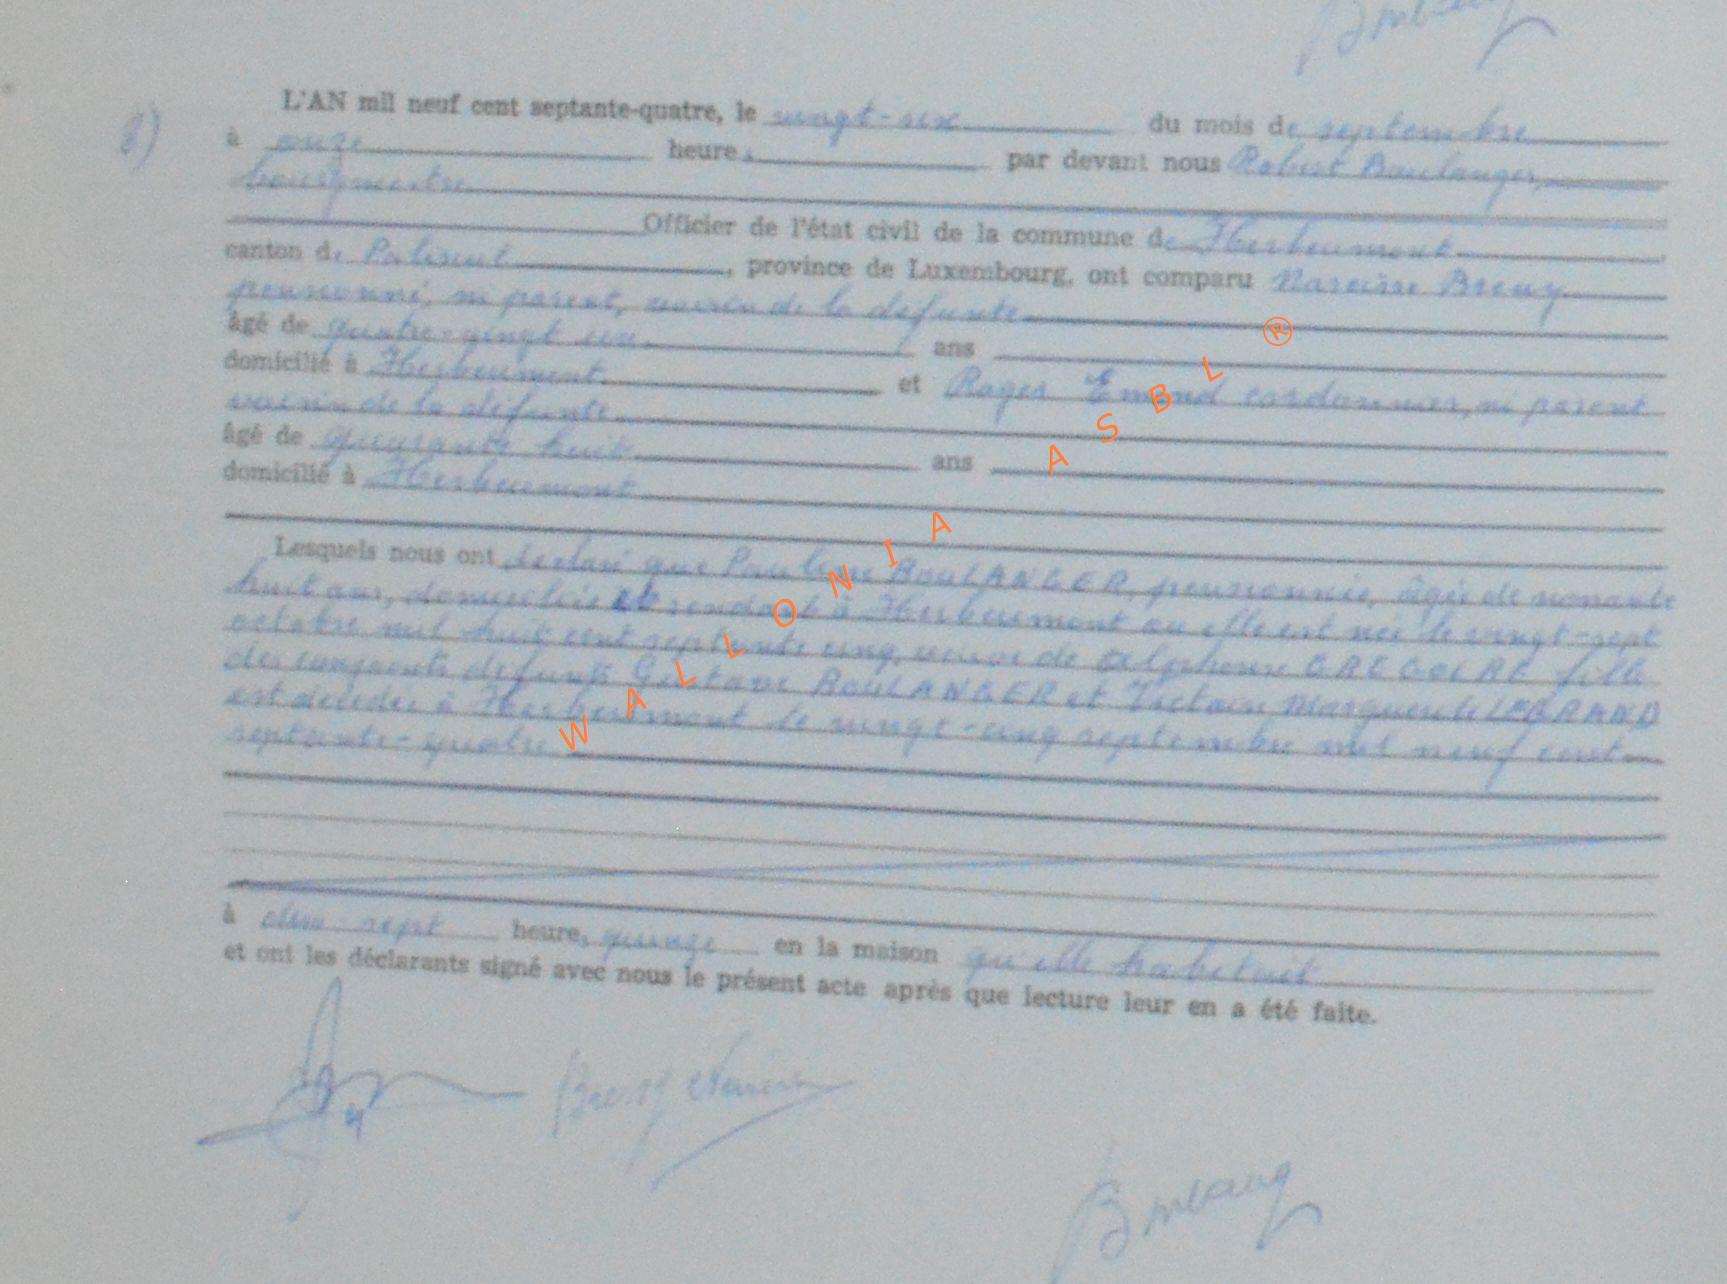 8)
L'AN mil neuf cent septante-quatre, le vingt-six du mois de septembre
à onze heure, par devant nous Robert Boulanger,
bourgmestre
Officier de l'état civil de la commune de Herbeumont
canton de Paliseul, province de Luxembourg, ont comparu Narcisse Breuy
pensionné, ni parent, voisin de la défunte
âgé de quatre-vingt un ans
domicilié à Herbeumont et Roger Emond cordonnier, ni parent
voisin de la défunte
âgé de quarante huit ans
domicilié à Herbeumont
Lesquels nous ont déclaré que Pauline BOULANGER, pensionnée, âgée de nonante
huit ans, domiciliée et résidant à Herbeumont où elle est née le vingt-sept
octobre mil huit cent septante cinq, veuve de Alphonse GREGOIRE fille
des conjoints défunts Gustave BOULANGER et Victoire Marguerite LEGRAND
est décédée à Herbeumont le vingt-cinq septembre mil neuf cent
septante-quatre
à dix-sept heure, quinze en la maison qu'elle habitait
et ont les déclarants signé avec nous le présent acte après que lecture leur en a été faite.
WALLONIA ASBL ®